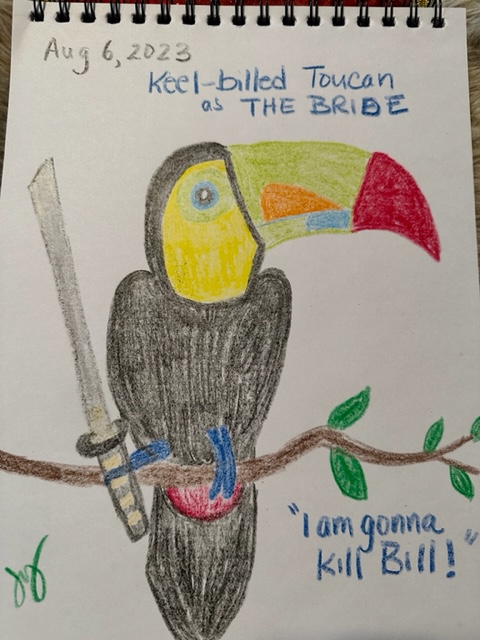 Aug 6, 2023
Keel-billed Toucan
as THE BRIDE
"I am gonna
Kill Bill!"